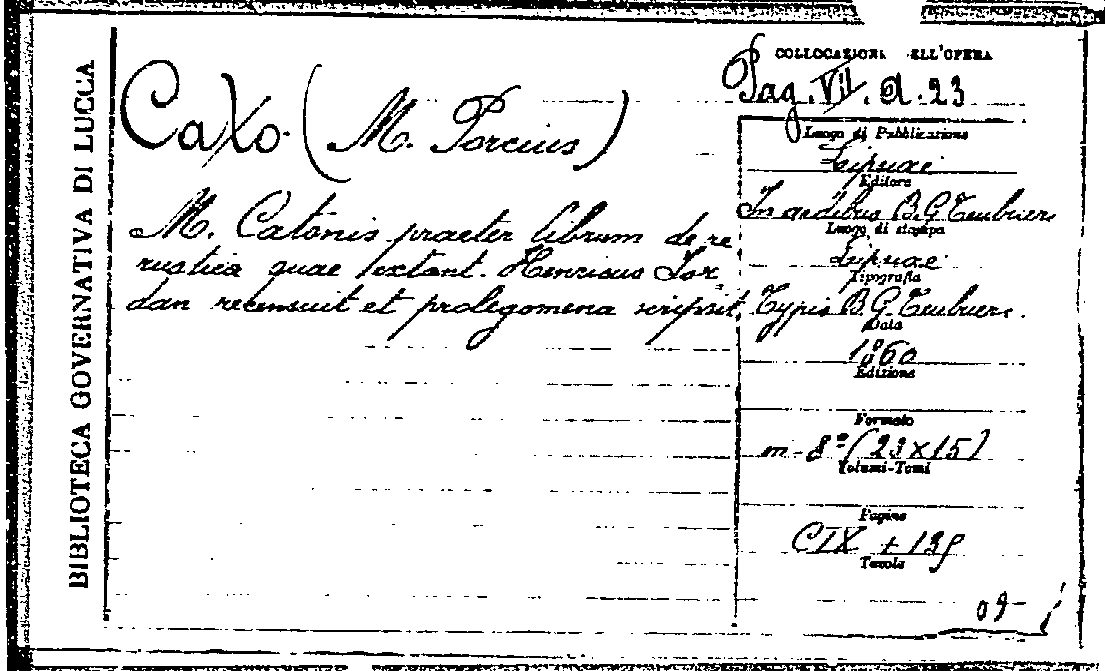 BIBLIOTECA GOVERNATIVA DI LUCCA
COLLOCAZIONE DELL'OPERA
Pag. VII. A. 23
Cato (M. Porcius)
M. Catonis praeter librum de re
rustica quae extant. Henricus Jor
dan recensuit et prolegomena scripsit.
Luogo di Pubblicazione
Lipsiae
Editore
In aedibus B. G. Teubneri
Luogo di stampa
Lipsiae
Tipografia
Typis B. G. Teubneri.
Data
1860
Edizione
Formato
in - 8º (23 x 15)
Volumi-Tomi
Pagine
CIX +
Tavole